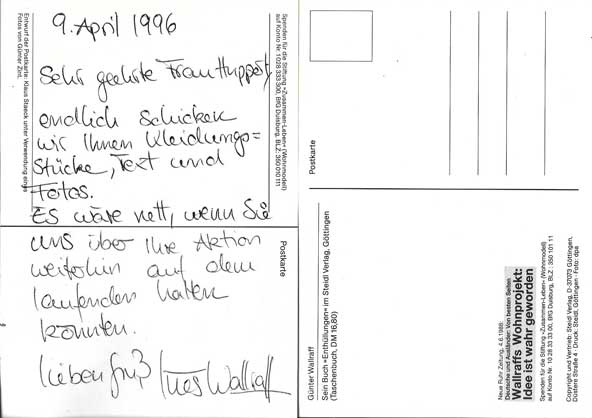 9. April 1996
Sehr geehrte Frau Huppertz
endlich schicken
wir Ihnen Kleidungs=
Stücke, Text und
Fotos.
Es wäre nett, wenn Sie
uns über Ihre Aktion
weiterhin auf dem
laufenden halten
könnten.
lieben Gruß Ines Wallraff
Entwurf der Postkarte: Klaus Staeck unter Verwendung eines
Fotos von Günter Zint.
Spenden für die Stiftung »Zusammen-Leben« (Wohnmodell)
auf Konto Nr. 1 028 333 300, BfG Duisburg, BLZ: 350 101 11
Postkarte
Postkarte
Günter Wallraff
Sein Buch »Enthüllungen« im Steidl Verlag, Göttingen
(Taschenbuch, DM 16,80)
Neue Ruhr Zeitung, 4.6.1988:
Deutsche und Ausländer: Von beiden Seiten
Wallraffs Wohnprojekt:
Idee ist wahr geworden
Spenden für die Stiftung »Zusammen-Leben« (Wohnmodell)
auf Konto Nr. 10 28 33 33 00, BfG Duisburg, BLZ : 350 101 11
Copyright und Vertrieb: Steidl Verlag, D-37073 Göttingen,
Düstere Straße 4 · Druck: Steidl, Göttingen · Foto: dpa